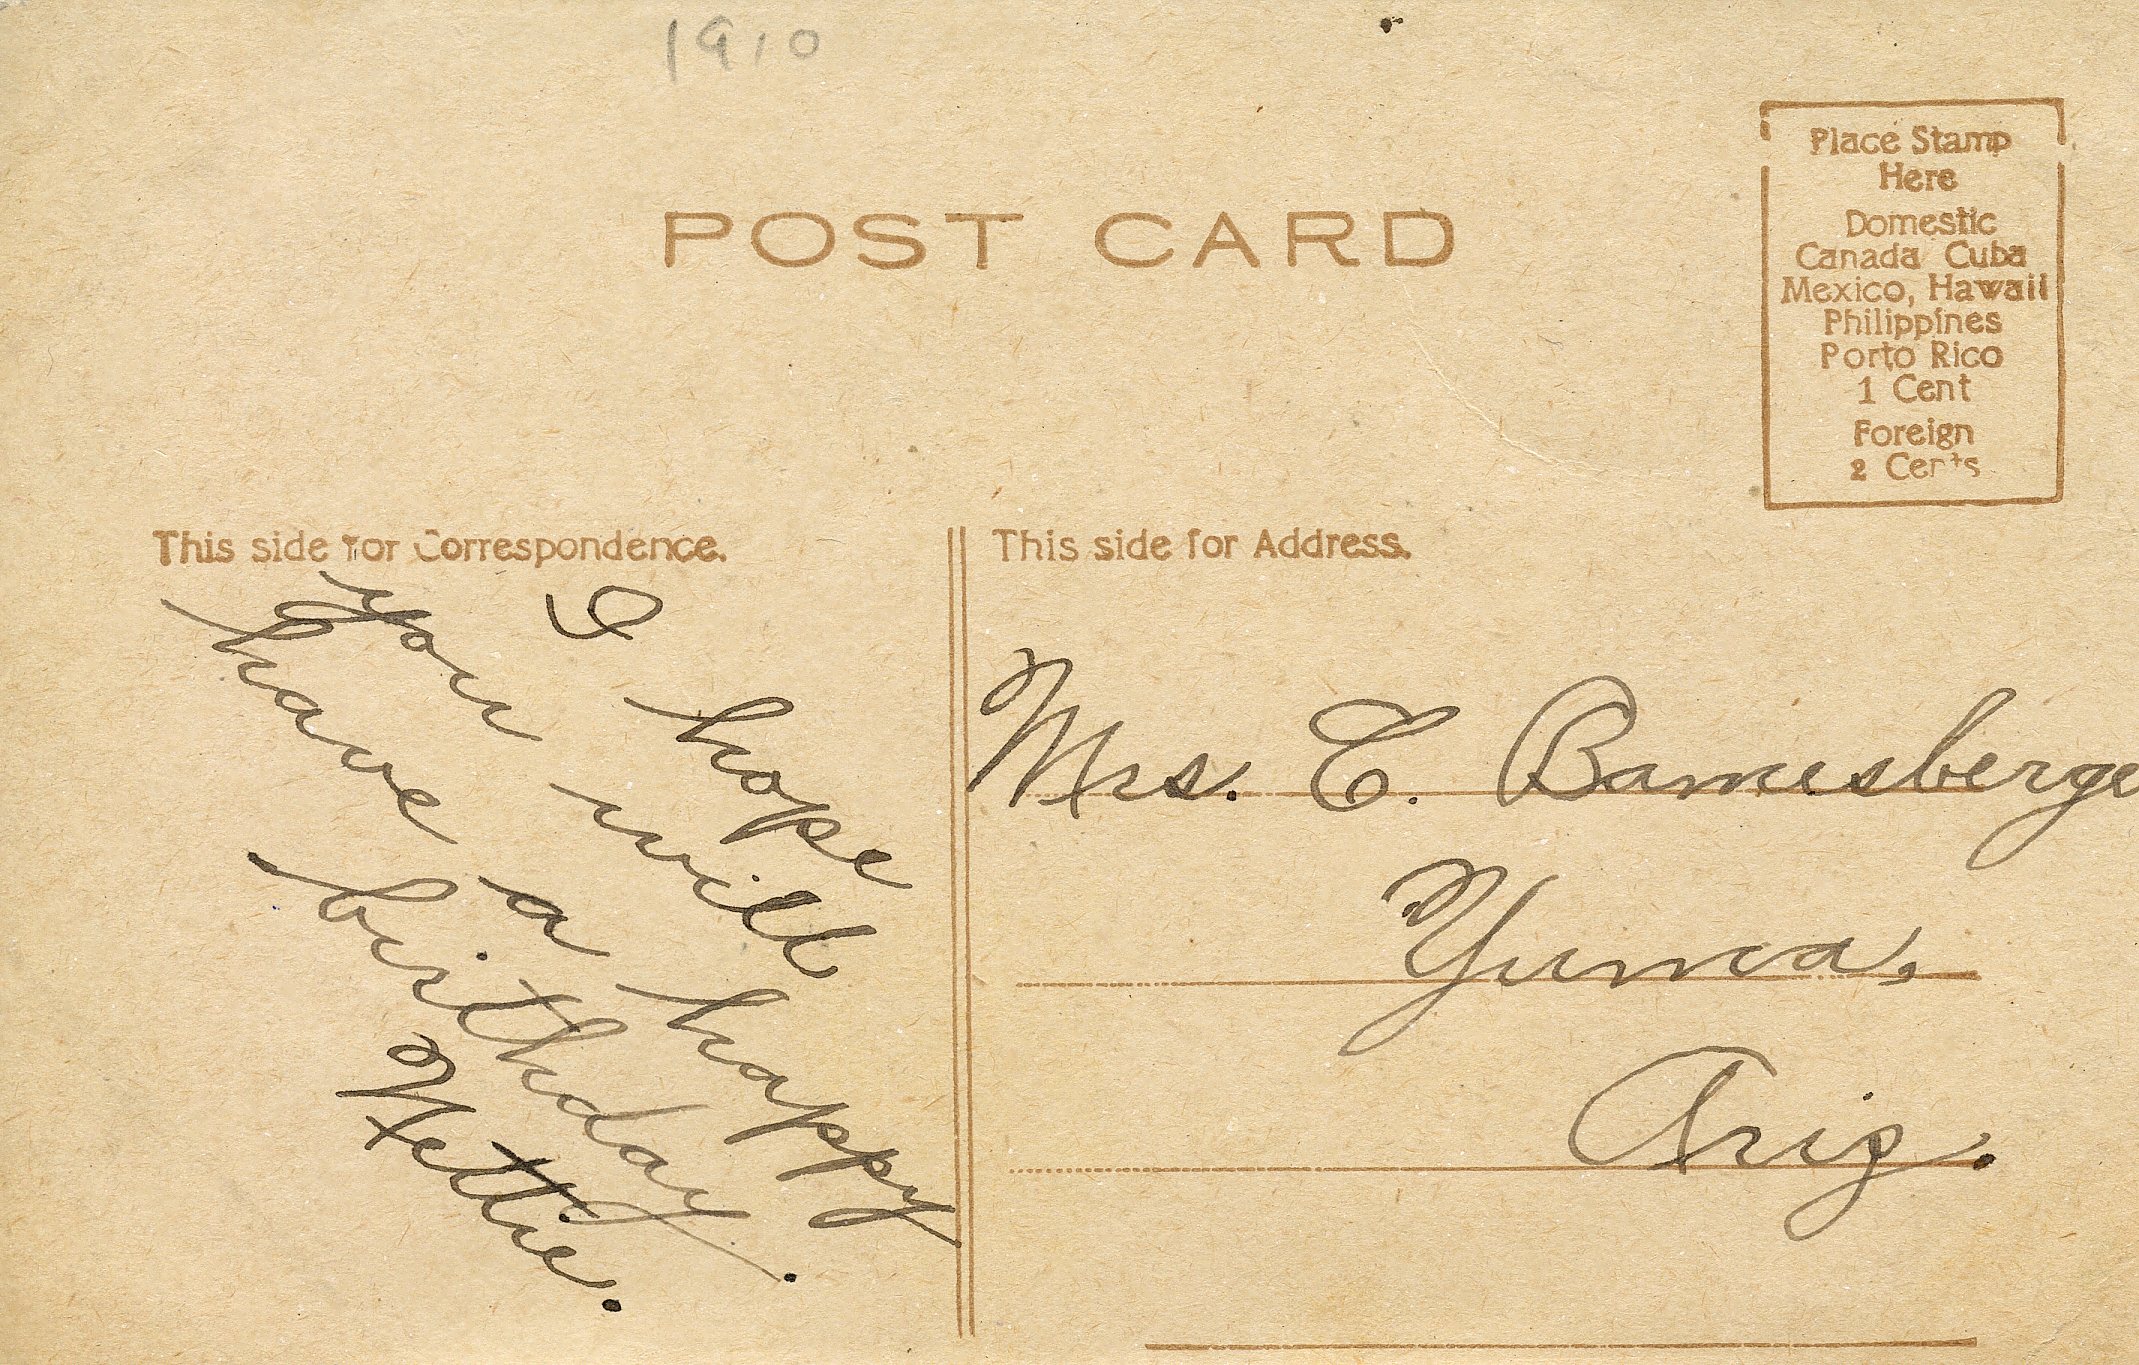 1910
POST CARD
Place Stamp
Here
Domestic
Canada Cuba
Mexico, Hawaii
Philippines
Porto Rico
1 Cent
Foreign
2 Cents
This side for Correspondence.
I hope
you will
have a happy
birthday.
Nettie.
This side for Address.
Mrs. E. Bamesberge
Yuma,
Ariz.